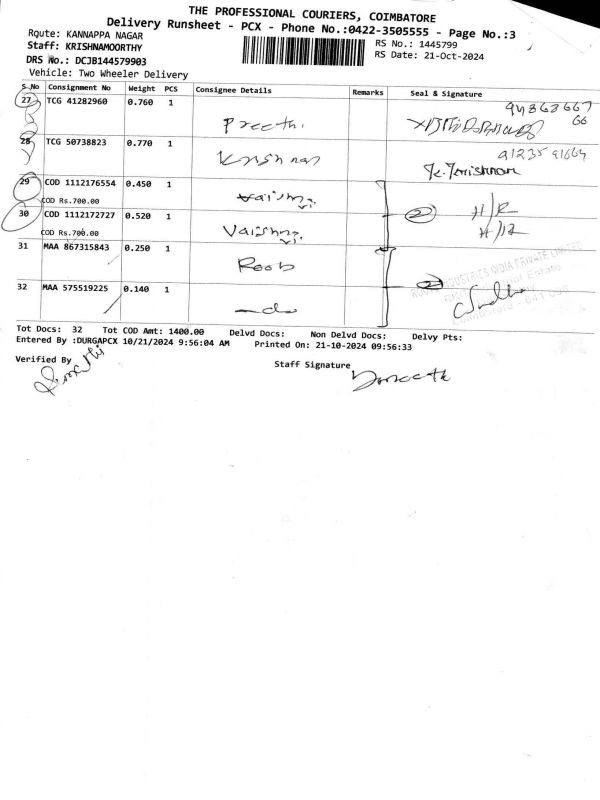 THE PROFESSIONAL COURIERS, COIMBATORE
Delivery Runsheet - PCX - Phone No.:0422-3505555 - Page No.:3
Route: KANNAPPA NAGAR
RS No.: 1445799
Staff: KRISHNAMOORTHY
RS Date: 21-Oct-2024
DRS No.: DCJB144579903
Vehicle: Two Wheeler Delivery
S.No Consignment No Weight PCS Consignee Details Remarks Seal & Signature
27 TCG 41282960 0.760 1
Preethi
28 TCG 50738823 0.770 1
Krishnan
K. Krishnan
29 COD 1112176554 0.450 1
COD Rs.700.00
Vaishnavi
2
H/R
30 COD 1112172727 0.520 1
COD Rs.700.00
Vaishnavi
H/R
31 MAA 867315843 0.250 1
Roob
2
INDUSTRIES INDIA PRIVATE LIMITED
Estate
32 MAA 575519225 0.140 1
—do
Tot Docs: 32 Tot COD Amt: 1400.00 Delvd Docs: Non Delvd Docs: Delvy Pts:
Entered By :DURGAPCX 10/21/2024 9:56:04 AM Printed On: 21-10-2024 09:56:33
Verified By
Staff Signature